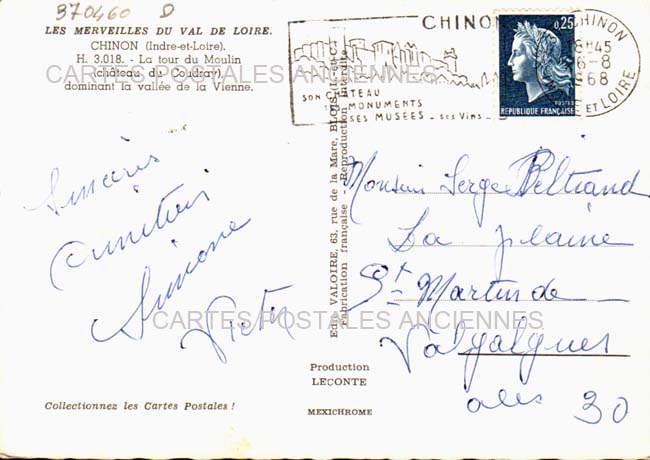 370460 D
LES MERVEILLES DU VAL DE LOIRE.
CHINON (Indre-et-Loire).
H. 3.018. - La tour du Moulin
(château du Coudray),
dominant la vallée de la Vienne.
CARTES POSTALES ANCIENNES
CHINON
SON CHÂTEAU
MONUMENTS
SES MUSEES - ses Vins
0,25
POSTES
REPUBLIQUE FRANÇAISE
CHINON
18H45
6-8
1968
ET LOIRE
Sincères
amitiés
Simone
Monsieur Serge Peltriand
La plaine
St Martin de
Valgalgues
ales 30
CARTES POSTALES ANCIENNES
Edit. VALOIRE, 63, rue de la Mare, BLOIS (L.-et-C.)
Fabrication française - Reproduction interdite
Production
LECONTE
MEXICHROME
Collectionnez les Cartes Postales !